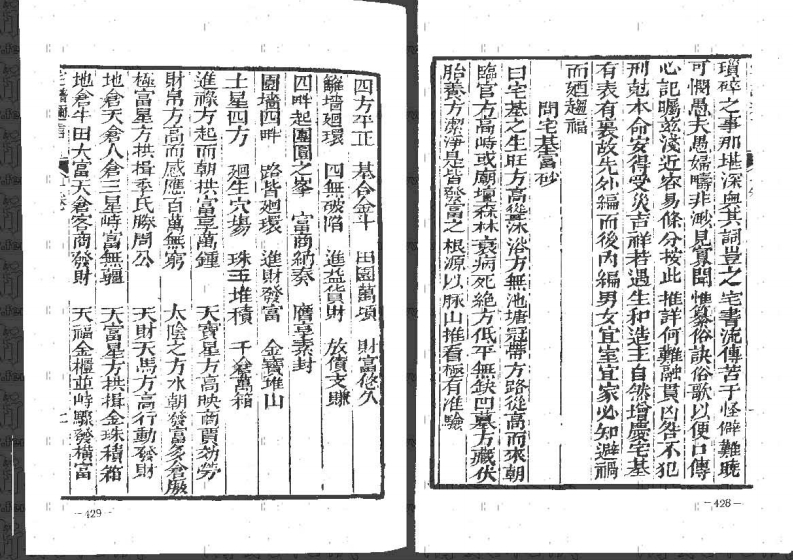 瑣碎之事那堪深奥其詞豈之宅書流傳苦于怪僻難曉
可憫愚夫愚婦疇非渺見寡聞惟纂俗訣俗歌以便口傳
心記囑茲淺近容易條分按此推詳何難融貫凶咎不犯
刑尅本命安得受災吉祥若遇生和造主自然增慶宅基
有表有裏故先外編而後内編男女宜室宜家必知避禍
而廼趨福
問宅基富砂
曰宅基之生旺方高聳沐浴方無池塘冠帶方路從高而來朝
臨官方高峙或廟壇森林衰病死絶方低平無缺凹墓方藏伏
胎養方潔淨是皆發富之根源以脉山推看極有准驗
-428-
四方平正 基合金斗 田園萬頃 財富悠久
籬墻廻環 四無破陷 進益貨財 放債支賺
四畔起團圓之峯 富商納奏 膺享素封
園墻四畔 路皆廻環 進財發富 金寶堆山
土星四方 廻生穴塲 珠玉堆積 千倉萬箱
進祿方起而朝拱富享萬鍾 天寶星方高映商賈効勞
財帛方高而感應百萬無窮 太陰之方水朝發富多倉廒
極富星方拱揖季氏勝周公 天財天馬方高行動發財
地倉天倉人倉三星峙富無疆 天富星方拱揖金珠積箱
地倉牛田大富天倉客商發財 天福金櫃並峙驟發橫富
-429-